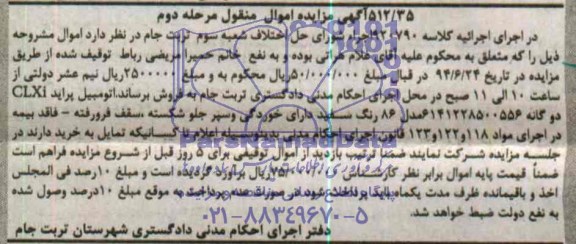 ۵۱۲/۳۵آگهی مزایده اموال منقول مرحله دوم
در اجرای اجرائیه کلاسه ۹۲۰۷۹۰اجرا شورای حل اختلاف شعبه سوم تربت جام در نظر دارد اموال مشروحه
ذیل را که متعلق به محکوم علیه آقای غلام طرابی بوده و به نفع خانم حمیرا مریضی رباط توقیف شده از طریق
مزایده در تاریخ ۹۴/۶/۲۴ در قبال مبلغ ۵۰/۰۰۰/۰۰۰ریال محکوم به و مبلغ ۲۵۰۰۰۰۰ریال نیم عشر دولتی از
ساعت ۱۰ الی ۱۱ صبح در محل اجرای احکام مدنی دادگستری تربت جام به فروش برساند.اتومبیل پراید CLXi
دو گانه ۶۱۴۱۲۲۸۵۰۰۵۵۶مدل ۸۶ رنگ سفید دارای خوردگی وسپر جلو شکسته ،سقف فرورفته – فاقد بیمه
در اجرای مواد ۱۱۸و۱۲۲و۱۲۳ قانون اجرای احکام مدنی بدینوسیله اعلام تا کسانیکه تمایل به خرید دارند در
جلسه مزایده شرکت نمایند ضمنا ترتیب بازدید از اموال توقیفی برای ۵ روز قبل از شروع مزایده فراهم است
ضمناً قیمت پایه اموال برابر نظر کارشناس ریال برآورد گردیده است و مبلغ ۱۰درصد فی المجلس
اخذ و باقیمانده ظرف مدت یکماه باید پرداخت شود.در صورت عدم پرداخت به موقع مبلغ ۱۰درصد وصول شده
به نفع دولت ضبط خواهد شد.
دفتر اجرای احکام مدنی دادگستری شهرستان تربت جام
ParsNamadData
۰۲۱-۸۸۳۴۹۶۷۰-۵